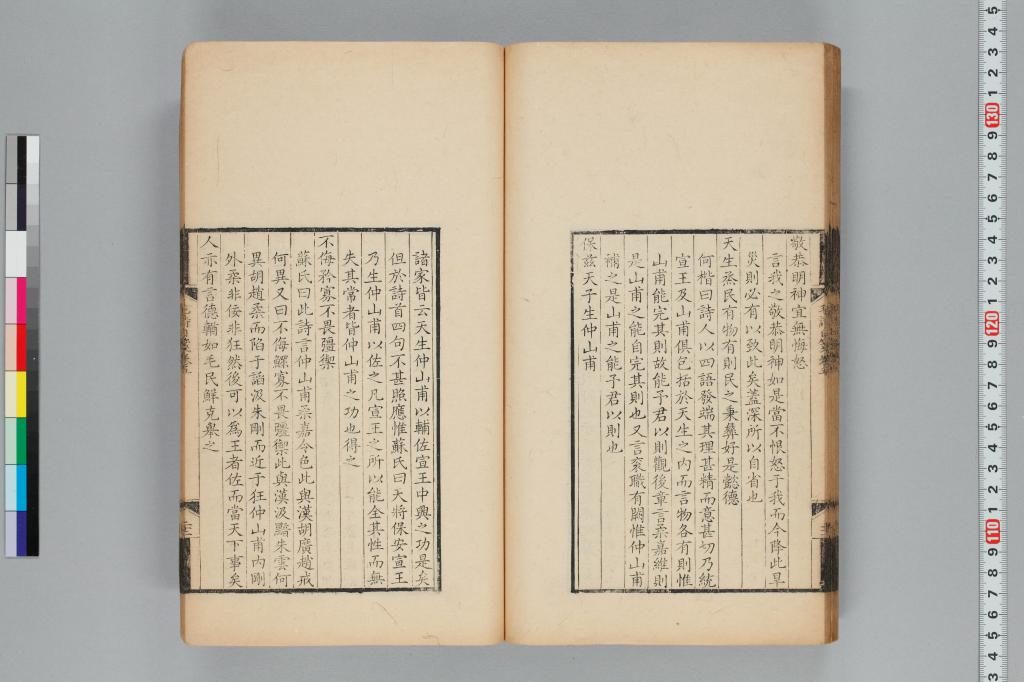 敬恭明神宜無悔怒
言我之敬恭明神如是當不恨怒于我而今降此旱
災則必有以致此矣蓋深所以自省也
天生烝民有物有則民之秉彝好是懿德
何楷曰詩人以四語發端其理甚精而意甚切乃統
宣王及山甫俱包括於天生之內而言物各有則惟
山甫能完其則故能予君以則觀後章言柔嘉維則
是山甫之能自完其則也又言袞職有闕惟仲山甫
補之是山甫之能予君以則也
保茲天子生仲山甫
諸家皆云天生仲山甫以輔佐宣王中興之功是矣
但於詩首四句不甚照應惟蘇氏曰天將保安宣王
乃生仲山甫以佐之凡宣王之所以能全其性而無
失其常者皆仲山甫之功也得之
不侮矜寡不畏彊禦
蘇氏曰此詩言仲山甫柔嘉令色此與漢胡廣趙戒
何異又曰不侮鰥寡不畏彊禦此與漢汲黯朱雲何
異胡趙柔而陷于諂汲朱剛而近于狂仲山甫內剛
外柔非佞非狂然後可以為王者佐而當天下事矣
人亦有言德輶如毛民鮮克舉之
110
120
130